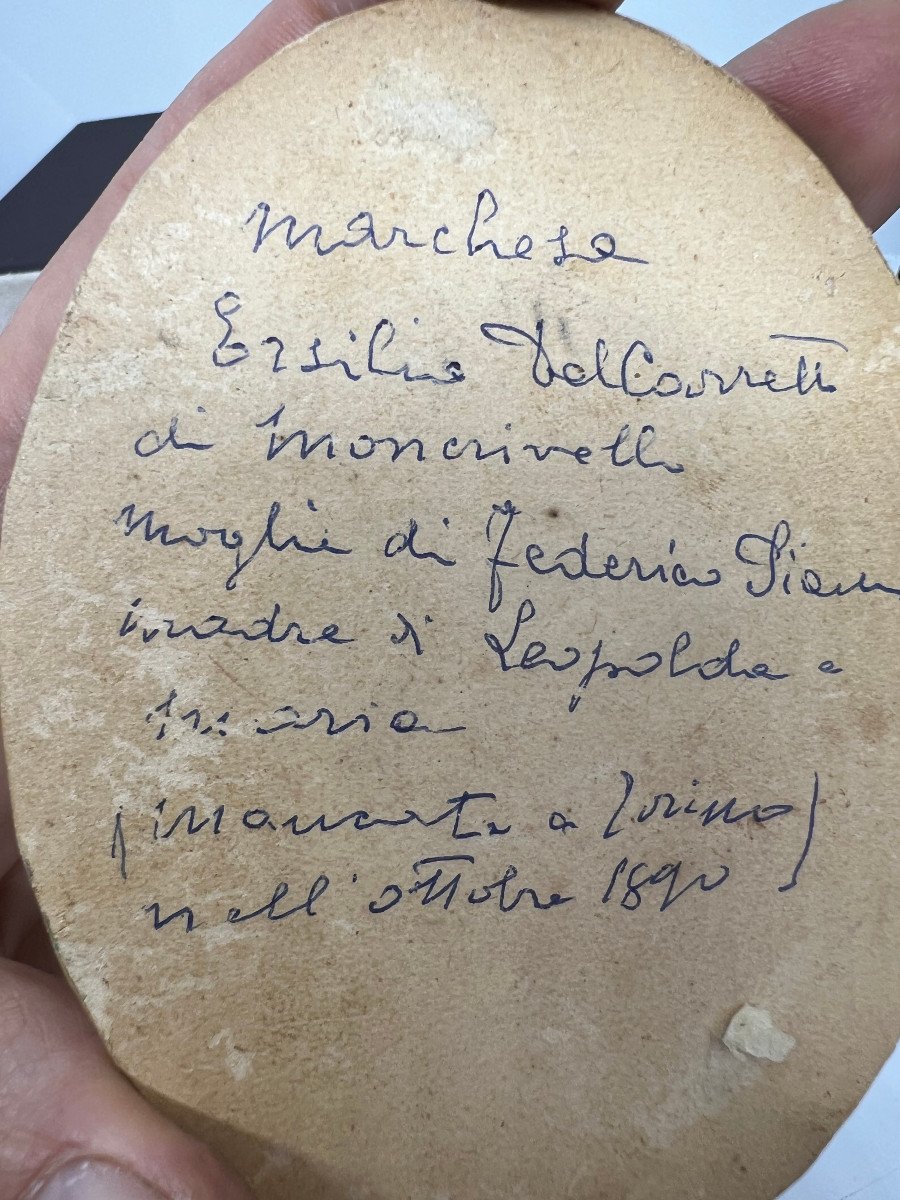 Marchesa
Ersilia Del Carretto
di Moncrivello
moglie di Federico
madre di Leopolda e
Maria
(mancata a Torino)
nell'ottobre 1890